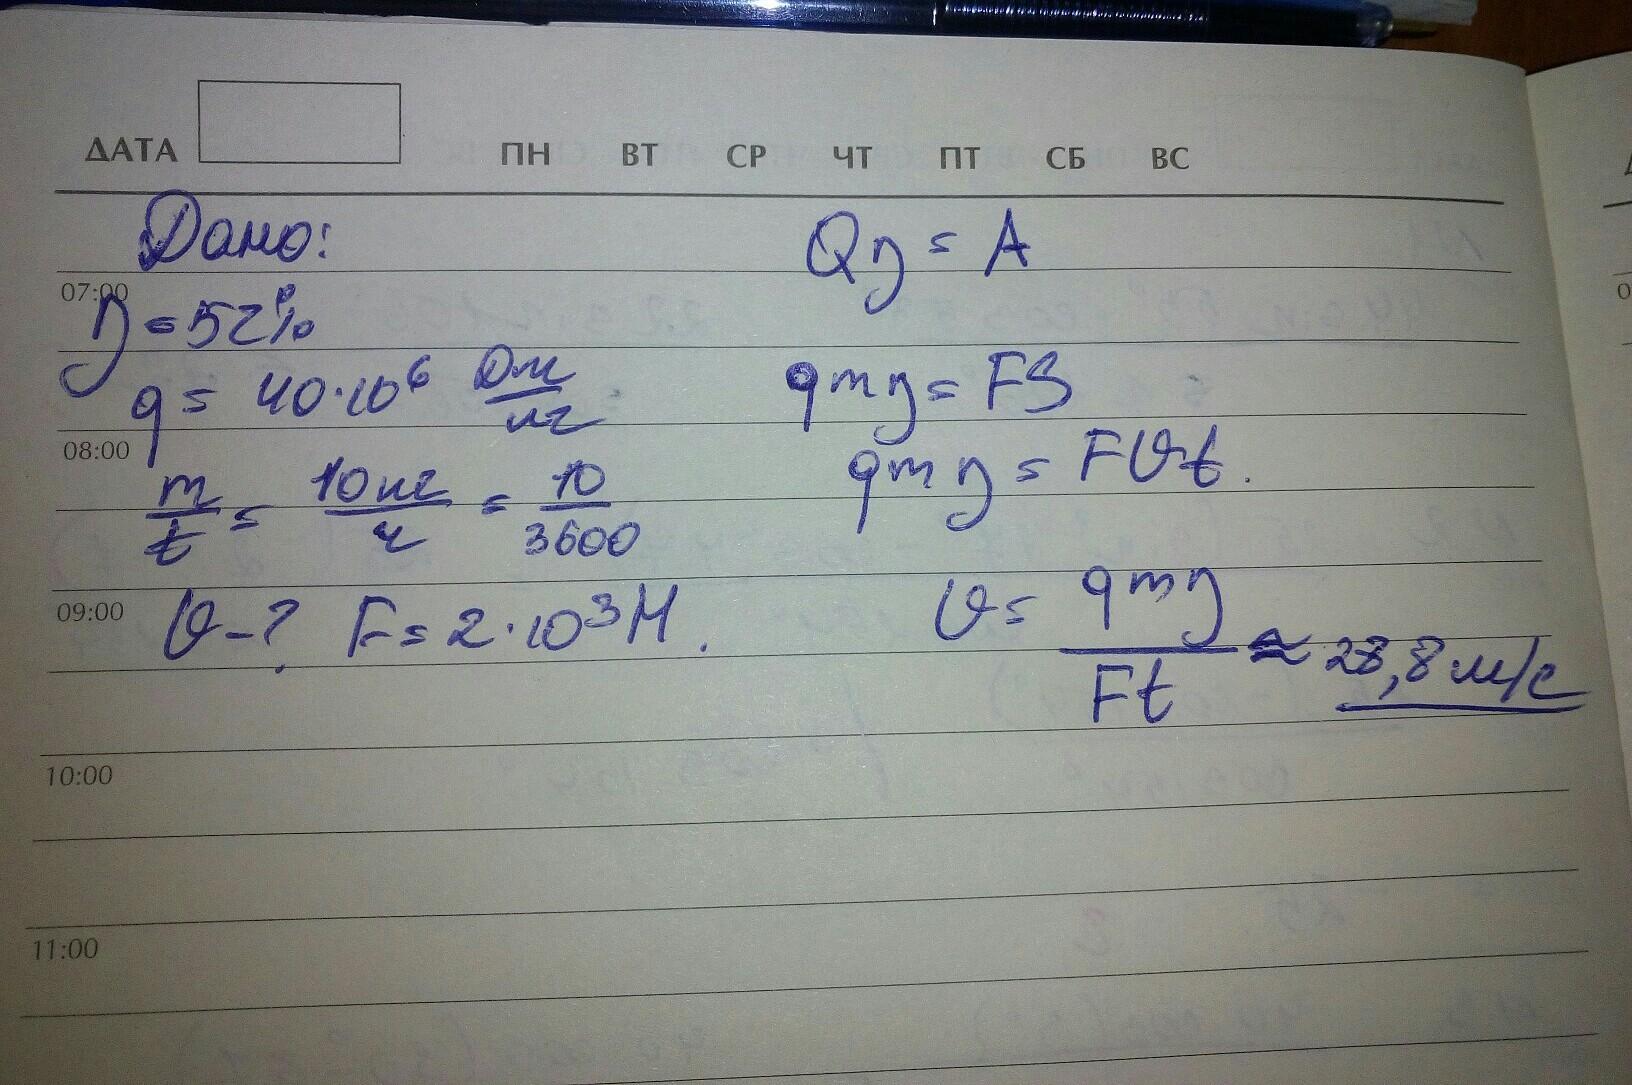 ДАТА ПН ВТ СР ЧТ ПТ СБ ВС
Дано:
07:00
η = 52%
q = 40·10⁶ Дж/кг
08:00
m/t = 10кг/ч = 10/3600
09:00
υ-? F = 2·10³Н.
Qη = A
qmη = FS
qmη = Fυt.
υ = qmη/Ft ≈ 28,8 м/с
10:00
11:00